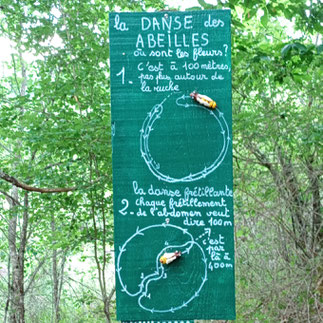 la DANSE des
ABEILLES
- où sont les fleurs?
1. C'est à 100 mètres,
pas plus autour de
la ruche
la danse frétillante
2 - chaque frétillement
de l'abdomen veut
dire 100m
c'est
par
là à
400m